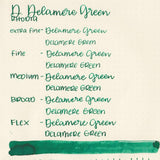 D. Delamere Green
extra fine - Delamere Green
Delamere Green
Fine - Delamere Green
Delamere Green
Medium - Delamere Green
Delamere Green
Broad - Delamere Green
Delamere Green
Flex - Delamere Green
Delamere Green